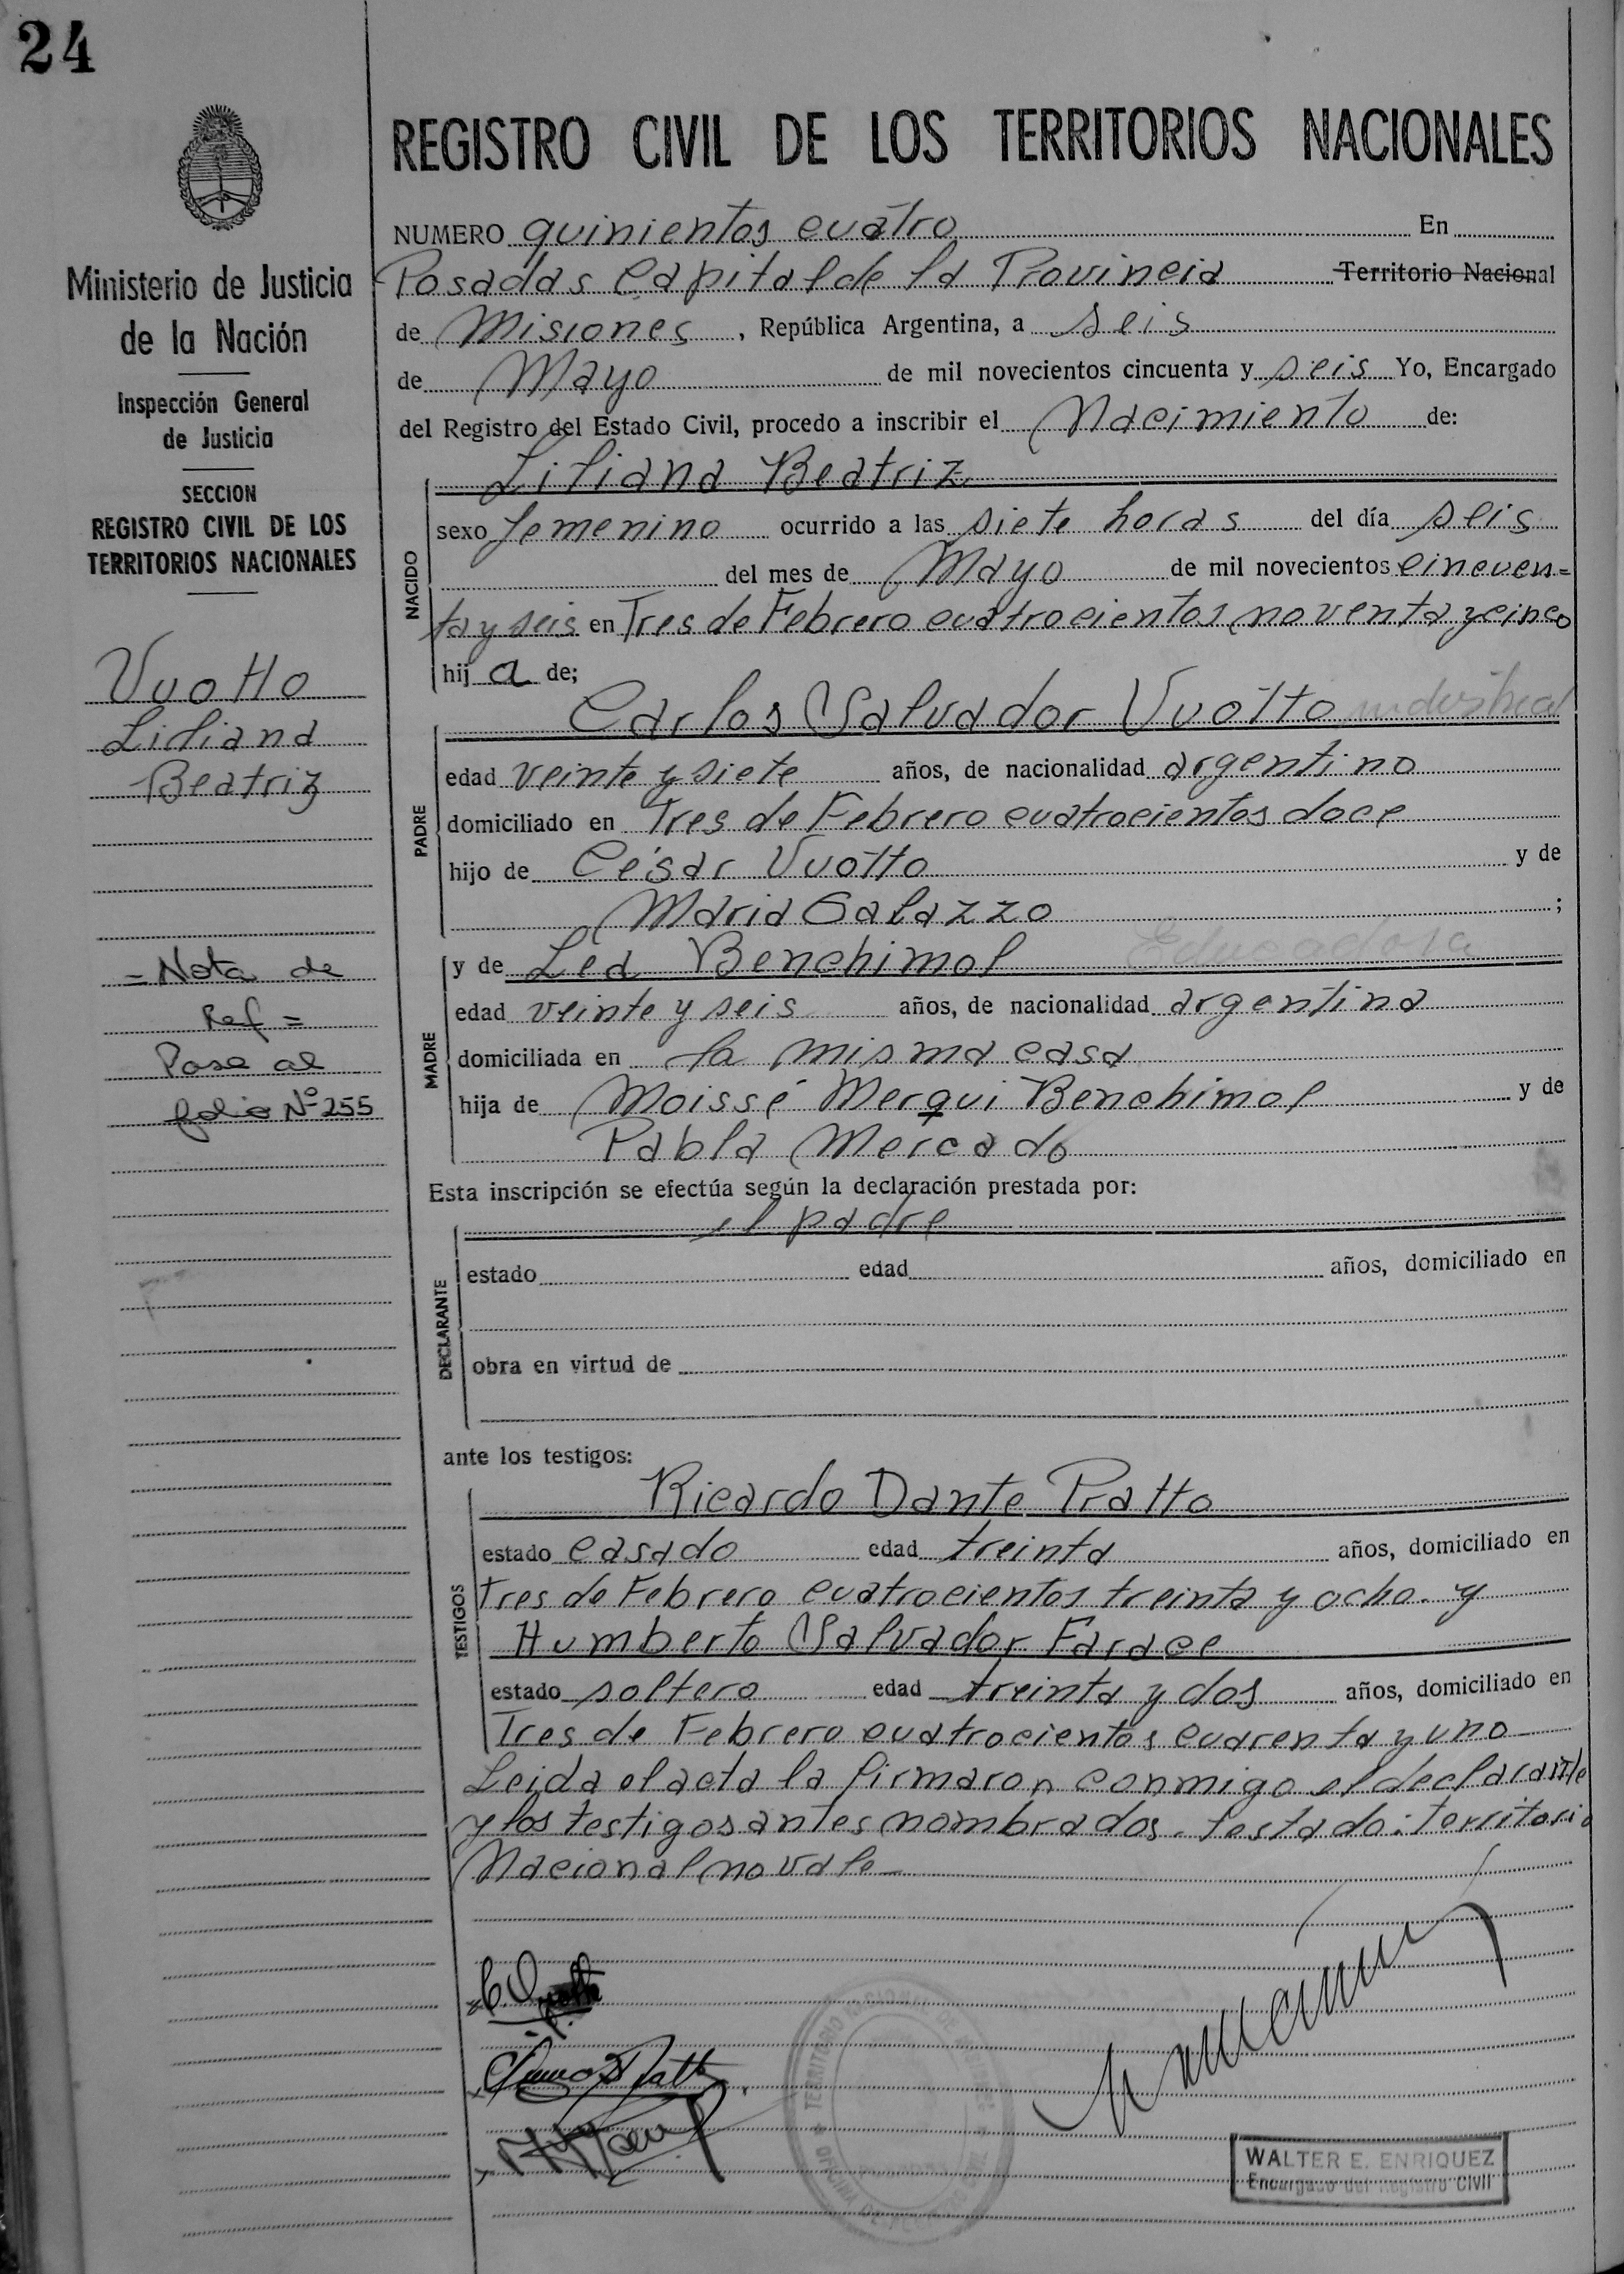 24
REGISTRO CIVIL DE LOS TERRITORIOS NACIONALES
Ministerio de Justicia
de la Nación
Inspección General
de Justicia
SECCION
REGISTRO CIVIL DE LOS
TERRITORIOS NACIONALES
Vuotto
Liliana
Beatriz
= Nota de
Ref =
Pasa al
folio Nº 255
NUMERO quinientos cuatro En
Posadas Capital de la Provincia Territorio Nacional
de Misiones, República Argentina, a seis
de Mayo de mil novecientos cincuenta y seis Yo, Encargado
del Registro del Estado Civil, procedo a inscribir el Nacimiento de:
Liliana Beatriz
NACIDO
sexo femenino ocurrido a las siete horas del día seis
del mes de Mayo de mil novecientos cincuen=
ta y seis en Tres de Febrero cuatrocientos noventa y cinco
hij a de;
Carlos Salvador Vuotto industrial
PADRE
edad veinte y siete años, de nacionalidad argentino
domiciliado en Tres de Febrero cuatrocientos doce
hijo de César Vuotto y de
Maria Galazzo ;
y de Lea Benchimol Educadora
MADRE
edad veinte y seis años, de nacionalidad argentina
domiciliada en la misma casa
hija de Moissé Merqui Benchimol y de
Pabla Mercado
Esta inscripción se efectúa según la declaración prestada por:
el padre
DECLARANTE
estado edad años, domiciliado en
obra en virtud de
ante los testigos:
Ricardo Dante Pratto
TESTIGOS
estado casado edad treinta años, domiciliado en
Tres de Febrero cuatrocientos treinta y ocho. y
Humberto Salvador Farace
estado soltero edad treinta y dos años, domiciliado en
Tres de Febrero cuatrocientos cuarenta y uno
Leida el acta la firmaron conmigo el declarante
y los testigos antes nombrados. Testado: territorio
Nacional no vale
WALTER E. ENRIQUEZ
Encargado del Registro Civil